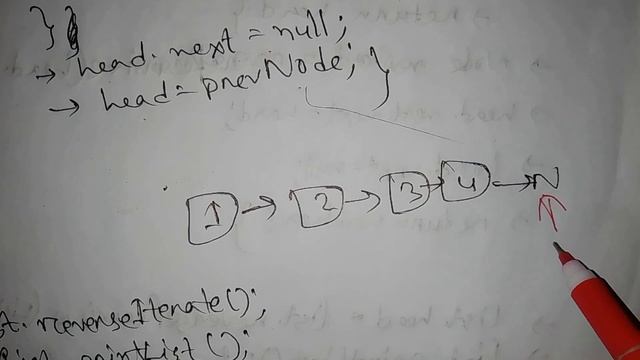 } }
→ head.next = null;
→ head = prevNode; }
1 → 2 → 3 → 4 → N
st. rcevenseItenate();
printList();